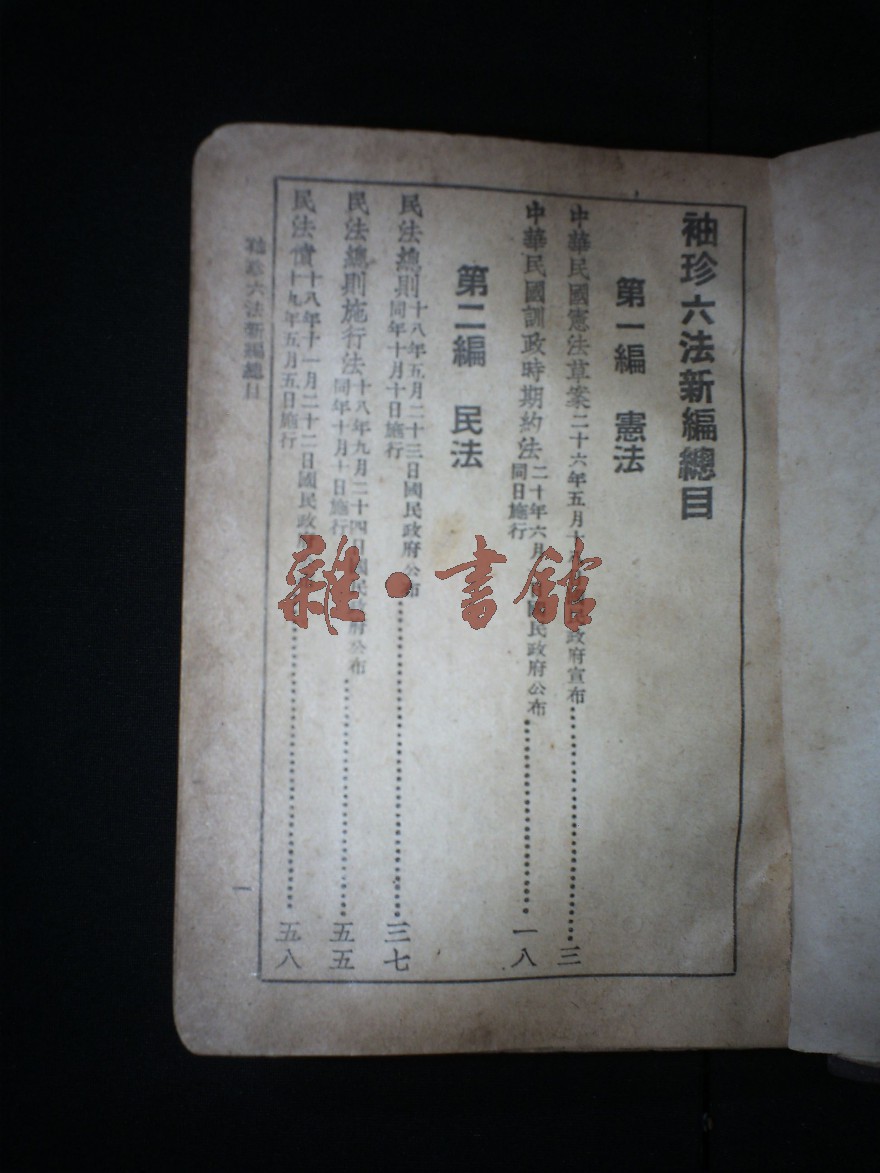 袖珍六法新編總目
第一編 憲法
中華民國憲法草案二十六年五月十 政府宣布……三
中華民國訓政時期約法二十年六月 日國民政府公布 同日施行……一八
第二編 民法
民法總則十八年五月二十三日國民政府公布 同年十月十日施行……三七
民法總則施行法十八年九月二十四日國民政府公布 同年十月十日施行……五五
民法債十八年十一月二十二日國民政府 十九年五月五日施行……五八
袖珍六法新編總目
一
雜·書館